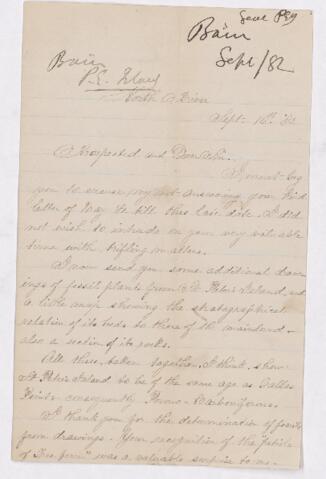 Geol PEI
Bain
Sept/82
Bain
P.E. Island
North River
Sept. 16th '82
Respected and Dear Sir.
I must beg
you to excuse my not answering your kind
letter of May till this late date. I did
not wish to intrude on your very valuable
time with trifling matters.
I now send you some additional draw-
ings of fossil plants from St. Peter's Island, and
a little map showing the stratigraphical
relation of its beds to those of the mainland –
also a section of its rocks.
All these, taken together, I think, show
St. Peter's Island to be of the same age as Gallas
Point – consequently Permo-Carboniferous.
I thank you for the determination of fossils
from drawings. Your recognition of the "petiole
of Tree fern" was a valuable surprise to me.